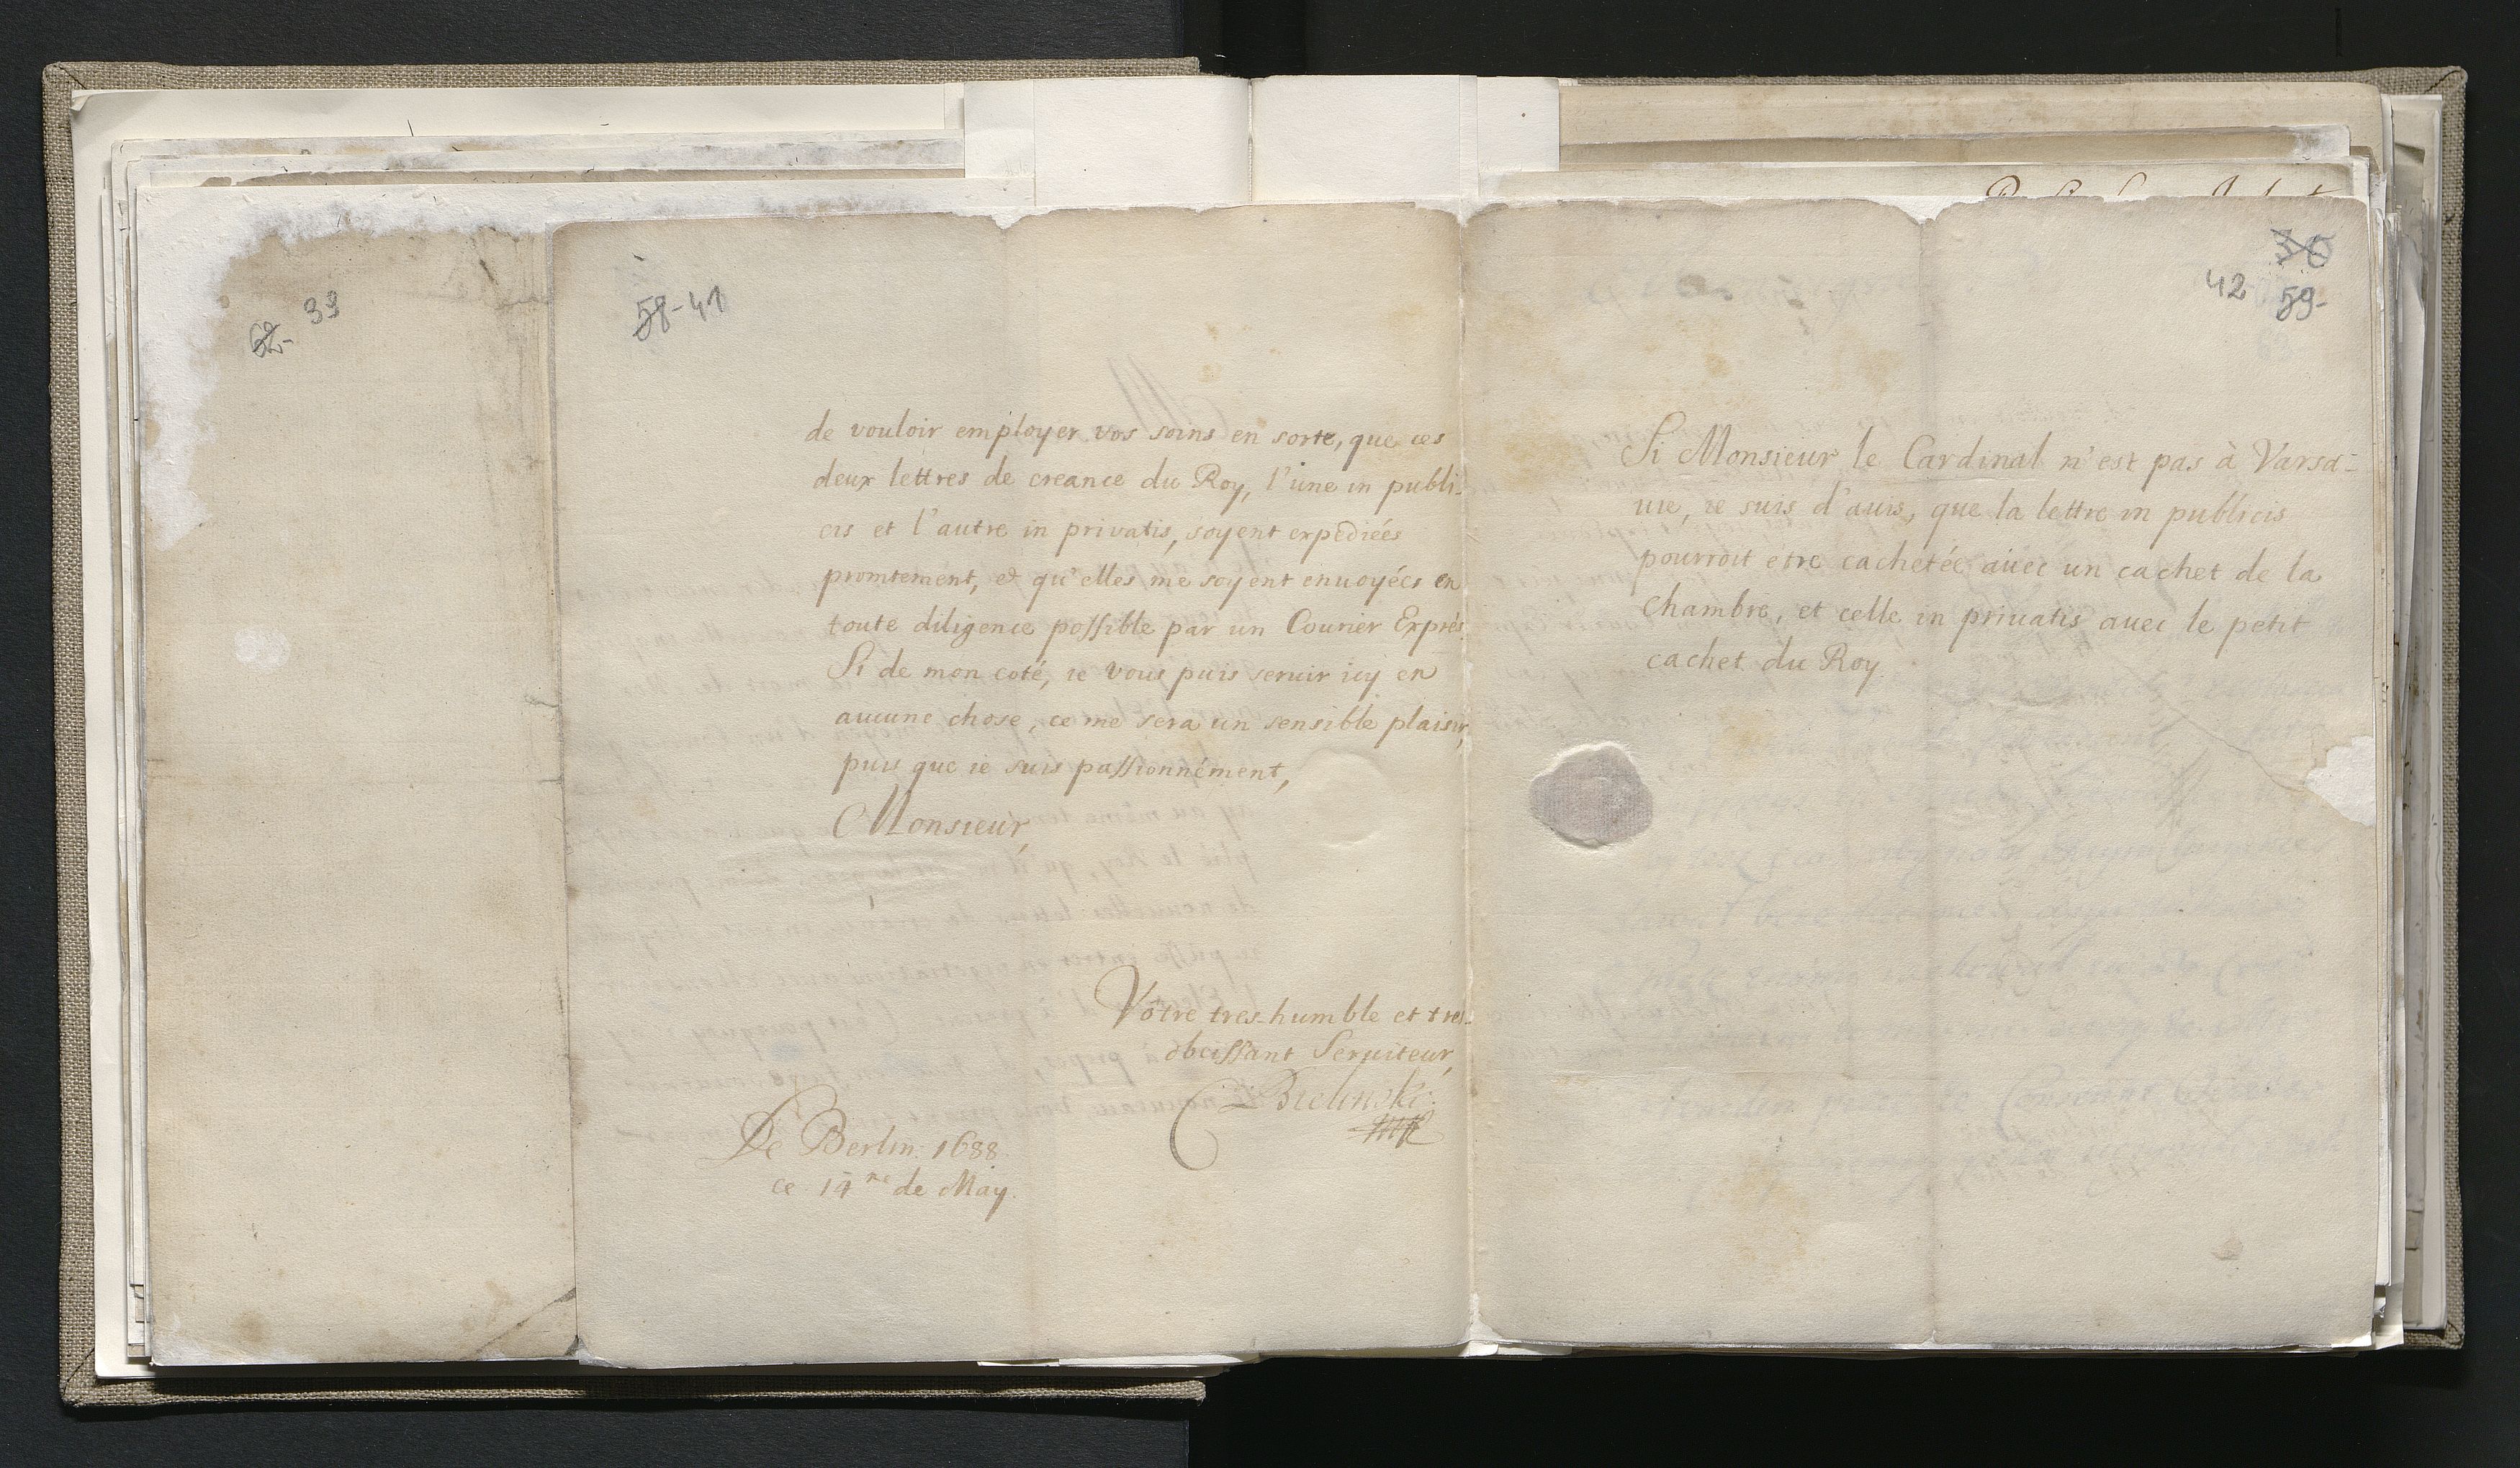 62- 39
58-41
de vouloir employer vos soins en sorte, que ces
deux lettres de creance du Roy, l'une in publi-
cis et l'autre in privatis, soyent expediées
promtement, et qu'elles me soyent enuoyées en
toute diligence possible par un Courier Exprés.
Si de mon coté, ie vous puis seruir icy en
aucune chose, ce me sera un sensible plaisir,
puis que ie suis passionnément,
Monsieur,
Votre tres-humble et tres-
obeissant Seruiteur,
Bielinski
De Berlin. 1688.
ce 14me de May.
36
42 59-
Si Monsieur le Cardinal n'est pas à Varsa-
uie, ie suis d'auis, que la lettre in publicis
pourroit etre cachetée auec un cachet de la
chambre, et celle in priuatis auec le petit
cachet du Roy.